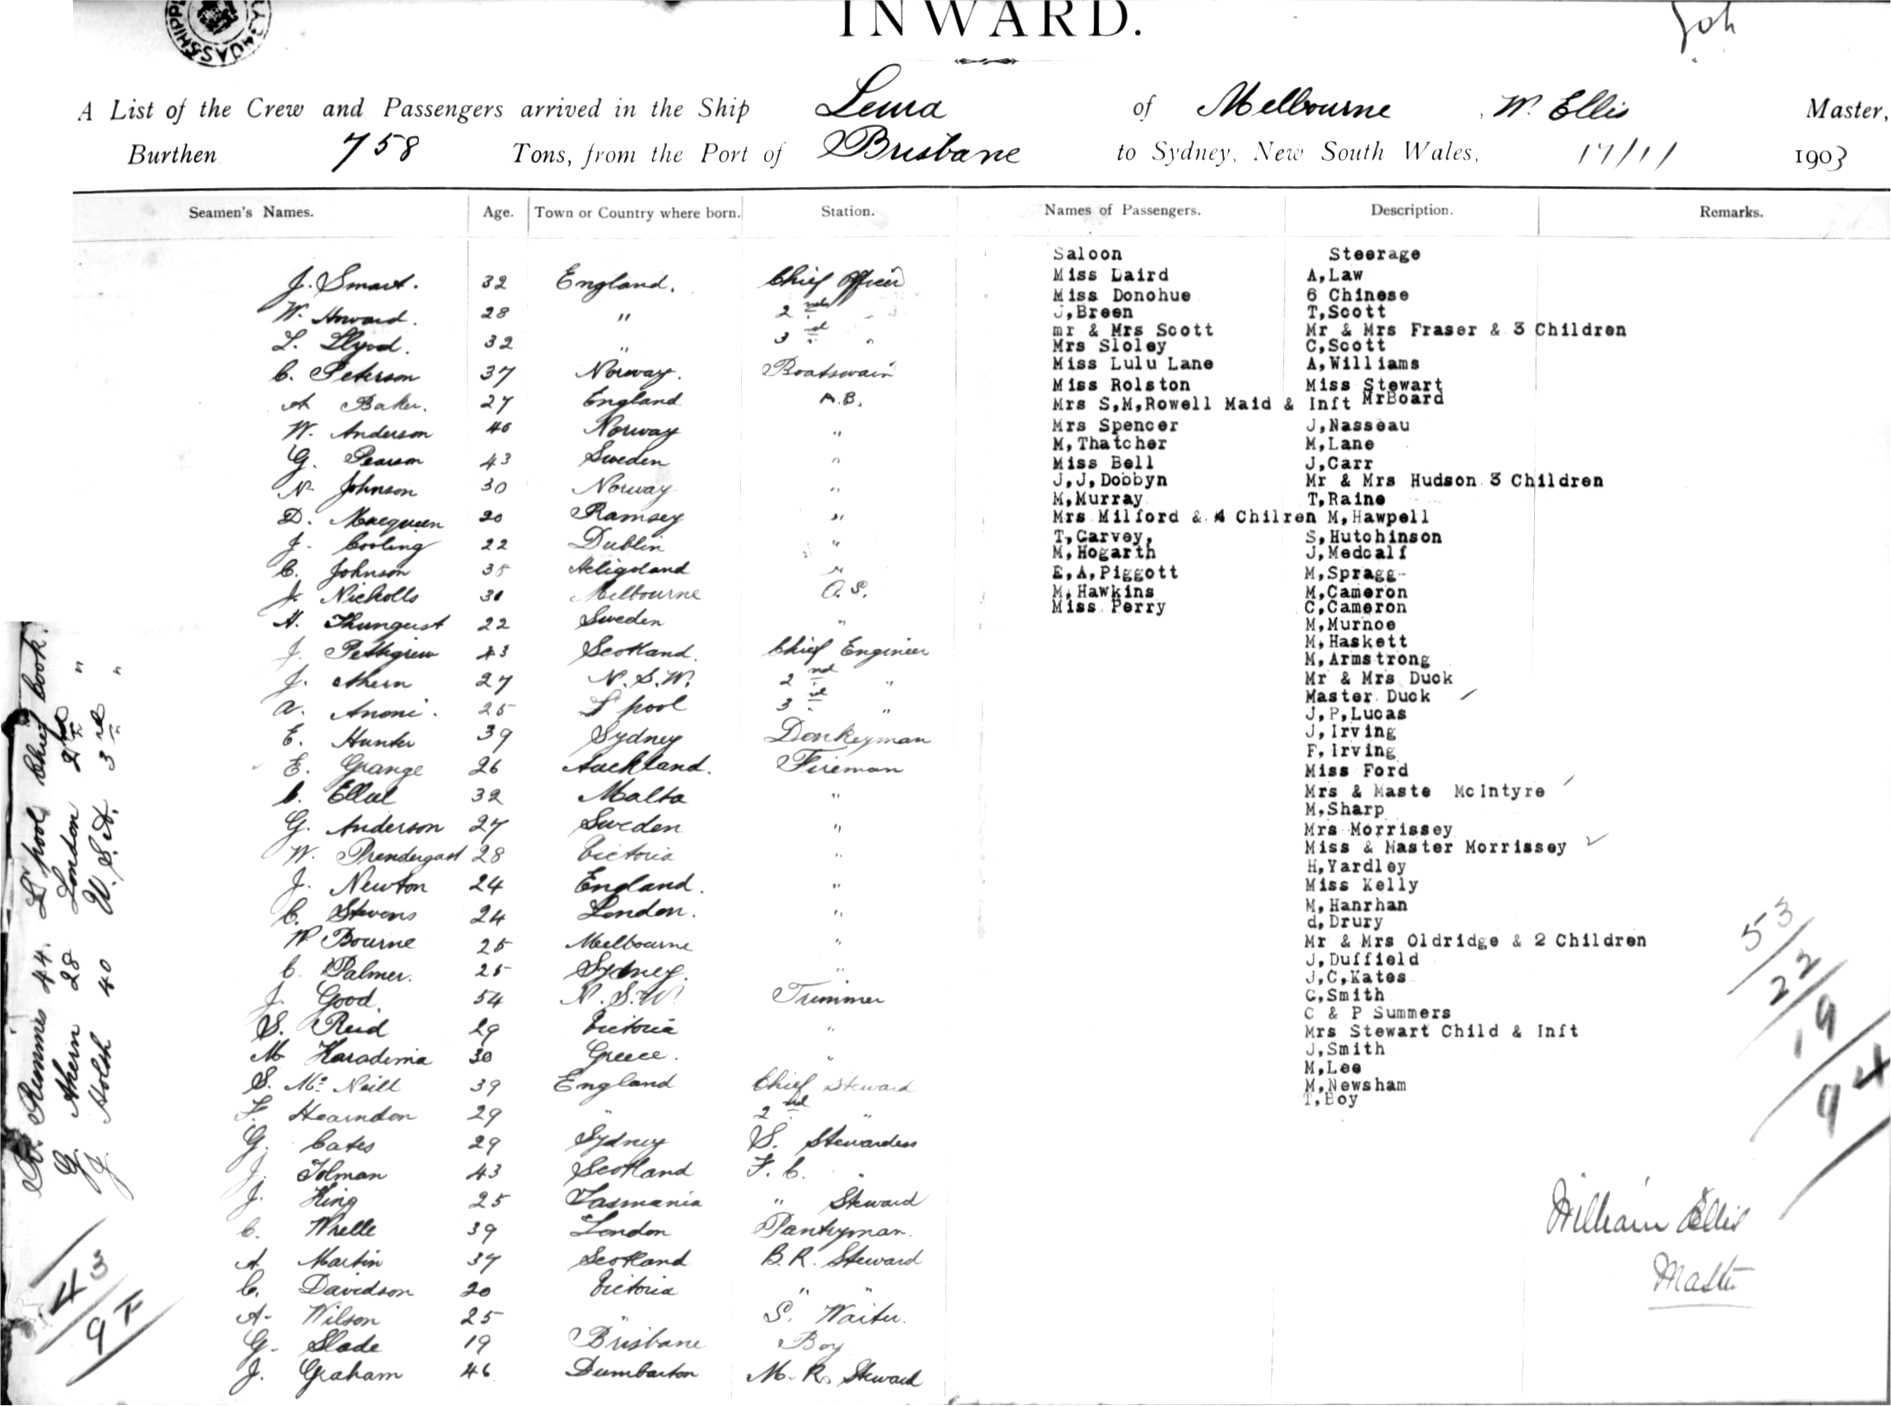 INWARD.
A List of the Crew and Passengers arrived in the Ship Leura of Melbourne, W. Ellis Master,
Burthen 758 Tons, from the Port of Brisbane to Sydney, New South Wales, 17/11 1903
Seamen's Names. Age. Town or Country where born. Station. Names of Passengers. Description. Remarks.
J. Smart. 32 England. Chief Officer
W. Howard. 28 " 2nd "
L. Llyod. 32 " 3rd "
C. Peterson 37 Norway. Boatswain
A Baker. 27 England A.B.
W. Anderson 40 Norway "
G. Pearson 43 Sweden "
N. Johnson 30 Norway "
D. Macqueen 20 Ramsey "
J. Cooling 22 Dublin "
C. Johnson 35 Heligoland "
J. Nicholls 30 Melbourne O.S.
A. Thungust 22 Sweden "
J. Pettigrew 43 Scotland. Chief Engineer
J. Ahern 27 N.S.W. 2nd "
A. Anoni. 25 L'pool 3rd "
E. Hunter 39 Sydney Donkeyman
E. Grange 26 Auckland. Fireman
C. Ellul 32 Malta "
G. Anderson 27 Sweden "
W. Prendergast 28 Victoria "
J. Newton 24 England. "
C. Stevens 24 London. "
W Bourne 25 Melbourne "
C. Palmer. 25 Sydney. "
J. Good. 54 N.S.W. Trimmer
S. Reid 29 Victoria "
M Haradimia 30 Greece. "
S. McNeill 39 England Chief Steward
F. Hearndon 29 " 2nd "
G. Cates 29 Sydney S. Stewardess
J. Tolman 43 Scotland F.C. "
J. King 25 Tasmania " Steward
C. Wrelle 39 London Pantryman.
A. Martin 37 Scotland B.R. Steward
C. Davidson 20 Victoria " "
A. Wilson 25 " S. Waiter.
G. Slade 19 Brisbane Boy
J. Graham 46 Dumbarton M.R. Steward
Saloon
Miss Laird
Miss Donohue
J,Breen
mr & Mrs Scott
Mrs Sloley
Miss Lulu Lane
Miss Rolston
Mrs S,M,Rowell Maid & Inft
Mrs Spencer
M,Thatcher
Miss Bell
J,J,Dobbyn
M,Murray
Mrs Milford & 4 Chilren
T,Carvey,
M,Hogarth
E,A,Piggott
M,Hawkins
Miss Perry
Steerage
A,Law
6 Chinese
T,Scott
Mr & Mrs Fraser & 3 Children
C,Scott
A,Williams
Miss Stewart
MrBoard
J,Nasseau
M,Lane
J,Carr
Mr & Mrs Hudson 3 Children
T,Raine
M,Hawpell
S,Hutchinson
J,Medcalf
M,Spragg-
M,Cameron
C,Cameron
M,Murnoe
M,Haskett
M,Armstrong
Mr & Mrs Duck
Master Duck
J,P,Lucas
J,Irving
F,Irving
Miss Ford
Mrs & Maste McIntyre
M,Sharp
Mrs Morrissey
Miss & Master Morrissey
H,Yardley
Miss Kelly
M,Hanrhan
d,Drury
Mr & Mrs Oldridge & 2 Children
J,Duffield
J,C,Kates
C,Smith
C & P Summers
Mrs Stewart Child & Inft
J,Smith
M,Lee
M,Newsham
T,Boy
53
22
19
94
William Ellis
Master
R. Rummes 44. L'pool Chief Cook.
G Ahern 28 London 2nd "
J Holsh 40 U.S.A. 3rd "
43